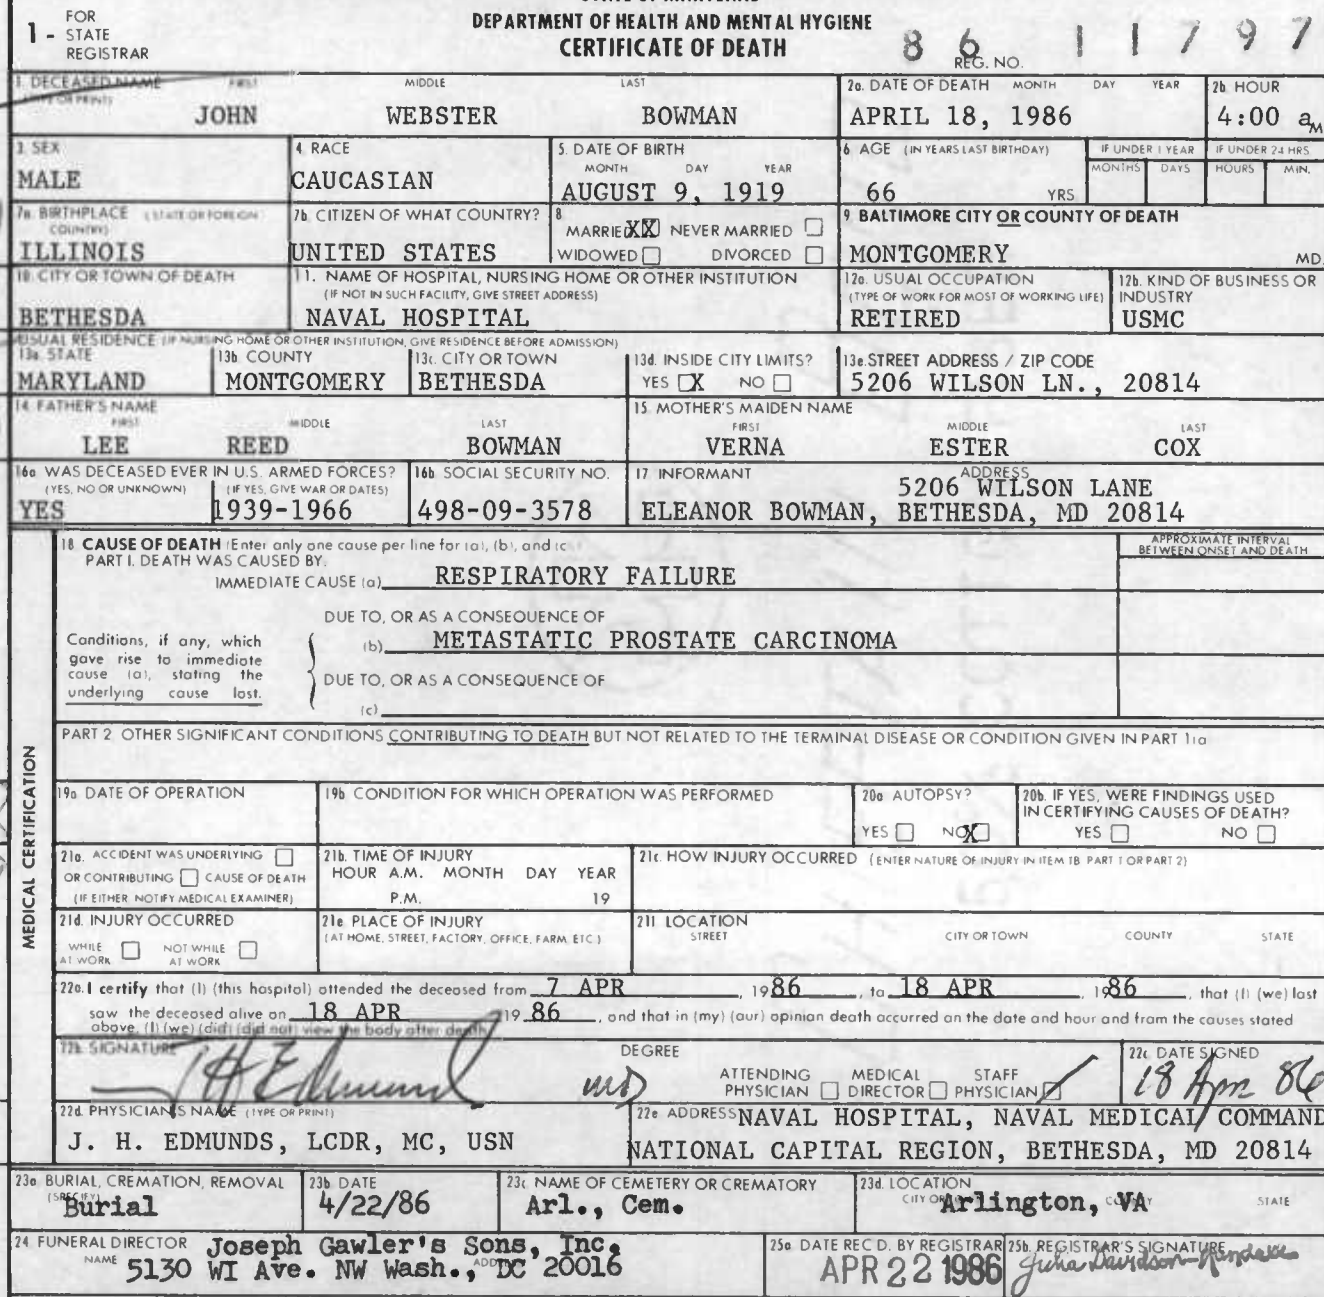 DEPARTMENT OF HEALTH AND MENTAL HYGIENE
CERTIFICATE OF DEATH
1 - FOR STATE REGISTRAR
86 11797
REG. NO.
1. DECEASED NAME FIRST MIDDLE LAST
(TYPE OR PRINT)
JOHN WEBSTER BOWMAN
2a. DATE OF DEATH MONTH DAY YEAR
APRIL 18, 1986
2b. HOUR
4:00 a M
3. SEX
MALE
4. RACE
CAUCASIAN
5. DATE OF BIRTH
MONTH DAY YEAR
AUGUST 9, 1919
6. AGE (IN YEARS LAST BIRTHDAY)
66 YRS
IF UNDER 1 YEAR
MONTHS DAYS
IF UNDER 24 HRS
HOURS MIN.
7a. BIRTHPLACE (STATE OR FOREIGN
COUNTRY)
ILLINOIS
7b. CITIZEN OF WHAT COUNTRY?
UNITED STATES
8
MARRIED XX NEVER MARRIED
WIDOWED DIVORCED
9 BALTIMORE CITY OR COUNTY OF DEATH
MONTGOMERY MD.
10. CITY OR TOWN OF DEATH
BETHESDA
11. NAME OF HOSPITAL, NURSING HOME OR OTHER INSTITUTION
(IF NOT IN SUCH FACILITY, GIVE STREET ADDRESS)
NAVAL HOSPITAL
12a. USUAL OCCUPATION
(TYPE OF WORK FOR MOST OF WORKING LIFE)
RETIRED
12b. KIND OF BUSINESS OR
INDUSTRY
USMC
USUAL RESIDENCE (IF NURSING HOME OR OTHER INSTITUTION, GIVE RESIDENCE BEFORE ADMISSION)
13a. STATE
MARYLAND
13b. COUNTY
MONTGOMERY
13c. CITY OR TOWN
BETHESDA
13d. INSIDE CITY LIMITS?
YES X NO
13e. STREET ADDRESS / ZIP CODE
5206 WILSON LN., 20814
14. FATHER'S NAME
FIRST MIDDLE LAST
LEE REED BOWMAN
15. MOTHER'S MAIDEN NAME
FIRST MIDDLE LAST
VERNA ESTER COX
16a WAS DECEASED EVER IN U.S. ARMED FORCES?
(YES, NO OR UNKNOWN) (IF YES, GIVE WAR OR DATES)
YES 1939-1966
16b. SOCIAL SECURITY NO.
498-09-3578
17 INFORMANT ADDRESS
5206 WILSON LANE
ELEANOR BOWMAN, BETHESDA, MD 20814
MEDICAL CERTIFICATION
18 CAUSE OF DEATH (Enter only one cause per line for (a), (b), and (c)
PART I. DEATH WAS CAUSED BY:
IMMEDIATE CAUSE (a) RESPIRATORY FAILURE
APPROXIMATE INTERVAL
BETWEEN ONSET AND DEATH
DUE TO, OR AS A CONSEQUENCE OF
(b) METASTATIC PROSTATE CARCINOMA
Conditions, if any, which
gave rise to immediate
cause (a), stating the
underlying cause last.
DUE TO, OR AS A CONSEQUENCE OF
(c)
PART 2 OTHER SIGNIFICANT CONDITIONS CONTRIBUTING TO DEATH BUT NOT RELATED TO THE TERMINAL DISEASE OR CONDITION GIVEN IN PART 1(a
19a. DATE OF OPERATION
19b. CONDITION FOR WHICH OPERATION WAS PERFORMED
20a AUTOPSY?
YES NO X
20b. IF YES, WERE FINDINGS USED
IN CERTIFYING CAUSES OF DEATH?
YES NO
21a. ACCIDENT WAS UNDERLYING
OR CONTRIBUTING CAUSE OF DEATH
(IF EITHER NOTIFY MEDICAL EXAMINER)
21b. TIME OF INJURY
HOUR A.M. MONTH DAY YEAR
P.M. 19
21c. HOW INJURY OCCURRED (ENTER NATURE OF INJURY IN ITEM 18 PART 1 OR PART 2)
21d. INJURY OCCURRED
WHILE AT WORK NOT WHILE AT WORK
21e PLACE OF INJURY
(AT HOME, STREET, FACTORY, OFFICE, FARM, ETC.)
21f LOCATION
STREET CITY OR TOWN COUNTY STATE
22a. I certify that (I) (this hospital) attended the deceased from 7 APR, 1986, to 18 APR, 1986, that (I) (we) last
saw the deceased alive on 18 APR 1986, and that in (my) (our) opinion death occurred on the date and hour and from the causes stated
above, (I) (we) (did) (did not) view the body after death
22b. SIGNATURE DEGREE
JH Edmunds MD
ATTENDING PHYSICIAN MEDICAL DIRECTOR STAFF PHYSICIAN
22c. DATE SIGNED
18 Apr 86
22d. PHYSICIAN'S NAME (TYPE OR PRINT)
J. H. EDMUNDS, LCDR, MC, USN
22e ADDRESS NAVAL HOSPITAL, NAVAL MEDICAL COMMAND
NATIONAL CAPITAL REGION, BETHESDA, MD 20814
23a. BURIAL, CREMATION, REMOVAL
(SPECIFY)
Burial
23b. DATE
4/22/86
23c. NAME OF CEMETERY OR CREMATORY
Arl., Cem.
23d. LOCATION
Arlington, VA
COUNTY STATE
24. FUNERAL DIRECTOR
NAME Joseph Gawler's Sons, Inc.
5130 WI Ave. NW Wash., DC 20016
25a. DATE REC'D. BY REGISTRAR
APR 22 1986
25b. REGISTRAR'S SIGNATURE
Julia Davidson-Randall